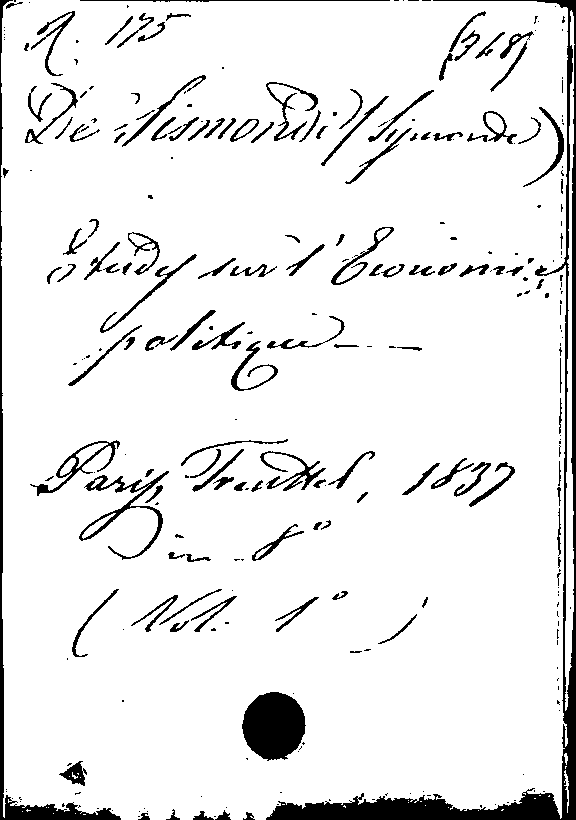 A. 175 (348)
De Sismondi (Symonde)
Etudes sur l'Economie
politique — —
Paris, Treuttel, 1837
in - 8°
(Vol. 1°)